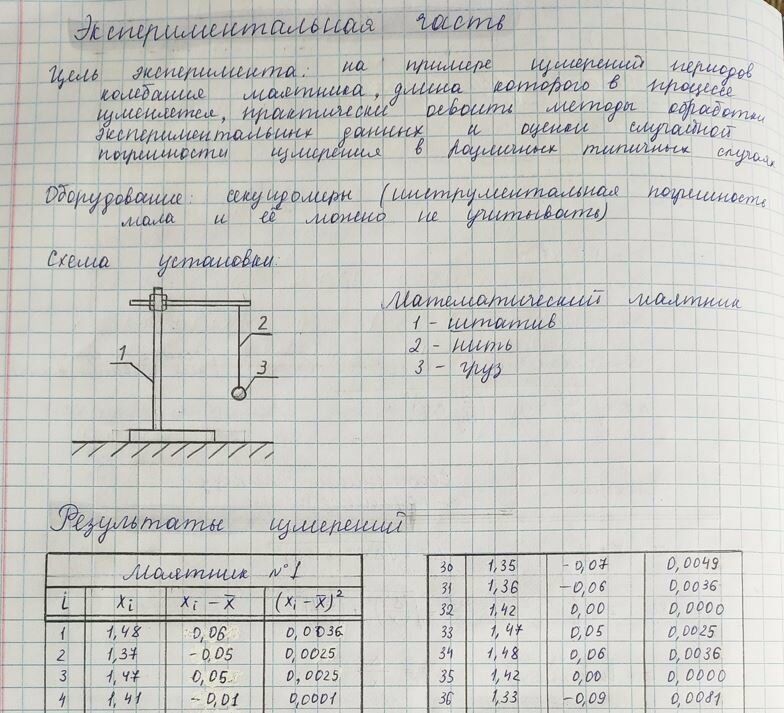 Экспериментальная часть
Цель эксперимента: на примере измерений периодов
колебания маятника, длина которого в процессе
изменяется, практически освоить методы обработки
экспериментальных данных и оценки случайной
погрешности измерения в различных типичных случаях
Оборудование: секундомеры (инструментальная погрешность
мала и её можно не учитывать)
Схема установки:
Математический маятник
1 - штатив
2 - нить
3 - груз
1
2
3
Результаты измерений
Маятник №1
i xi xi - x̄ (xi - x̄)²
1 1,48 0,06 0,0036
2 1,37 -0,05 0,0025
3 1,47 0,05 0,0025
4 1,41 -0,01 0,0001
30 1,35 -0,07 0,0049
31 1,36 -0,06 0,0036
32 1,42 0,00 0,0000
33 1,47 0,05 0,0025
34 1,48 0,06 0,0036
35 1,42 0,00 0,0000
36 1,33 -0,09 0,0081